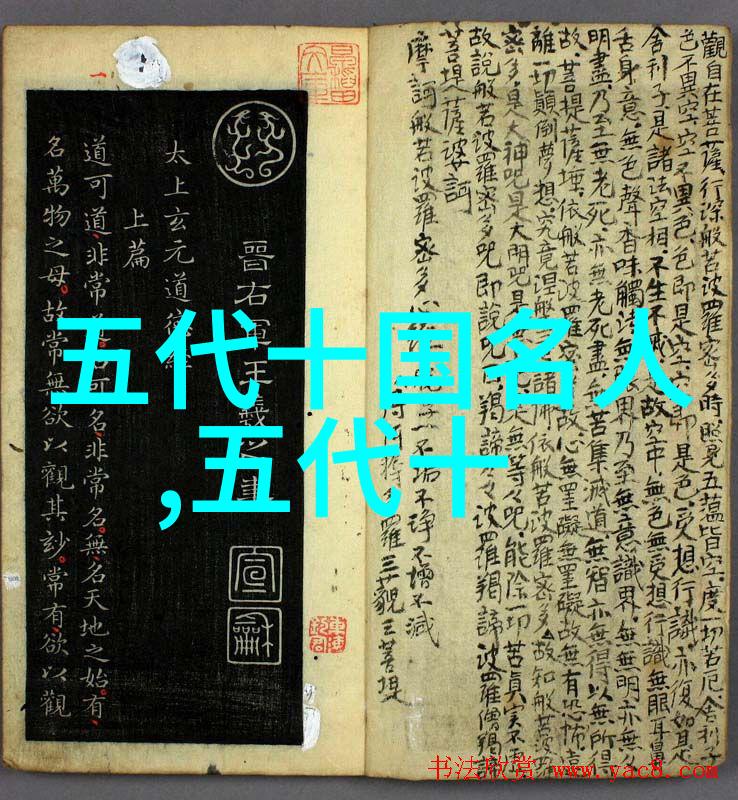 五代十国名人
,五代十
觀自在菩薩行深般若波羅密多時照見五蘊皆空度一切苦厄舍利子
色不異空空不異色色即是空空即是色受想行識亦復如是
舍利子是諸法空相不生不滅是故空中無色無受想行識無眼耳鼻
舌身意無色聲香味觸法無眼界乃至無意識界無無明亦無
明盡乃至無老死亦無老死盡無苦集滅道無智亦無得以無所得
故菩提薩埵依般若波羅密多故心無罣礙無罣礙故無有恐怖遠
離一切顛倒夢想究竟涅槃諸佛依般若波羅密多故知般若波羅
密多是大神咒是大明咒是無等々咒能除一切苦真实不虛
故說般若波羅密多咒即說咒曰揭諦々波羅揭諦波羅僧揭諦
菩提薩婆訶
摩訶般若波羅密多心經
不垢不淨不增不減
羅三藐三菩提
晉右軍王羲之書
宣龢
太上玄元道德經
上篇
道可道非常道名可名非常名無名天地之始有
名萬物之母故常無欲以觀其妙常有欲以觀
书法欣赏 www.yac8.com